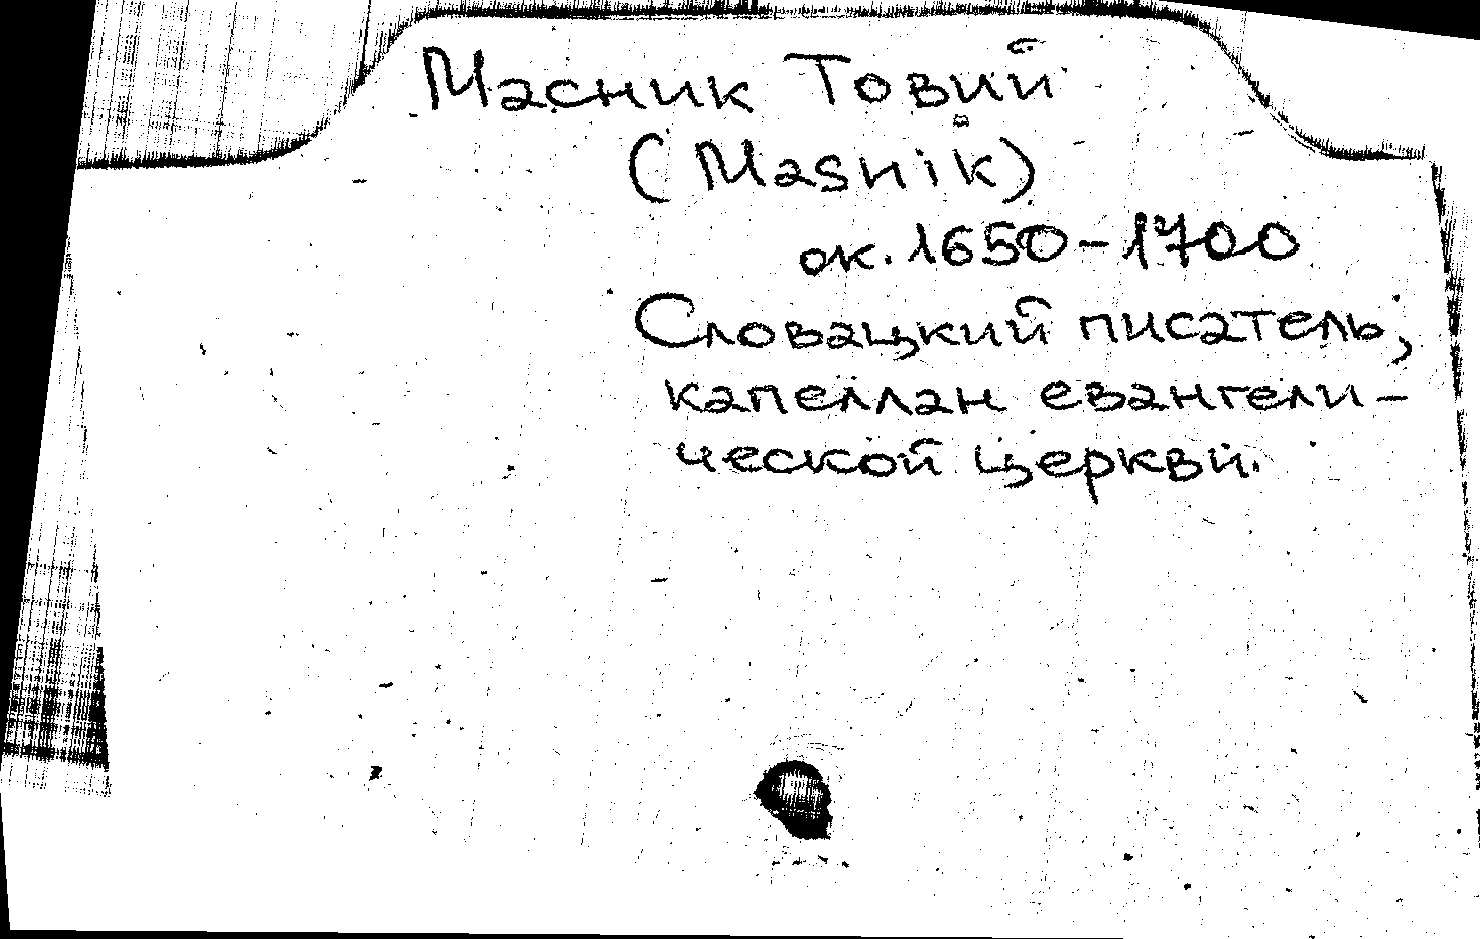 Масник Товий
(Masnik)
ок. 1650-1700
Словацкий писатель,
капеллан евангели-
ческой церкви.